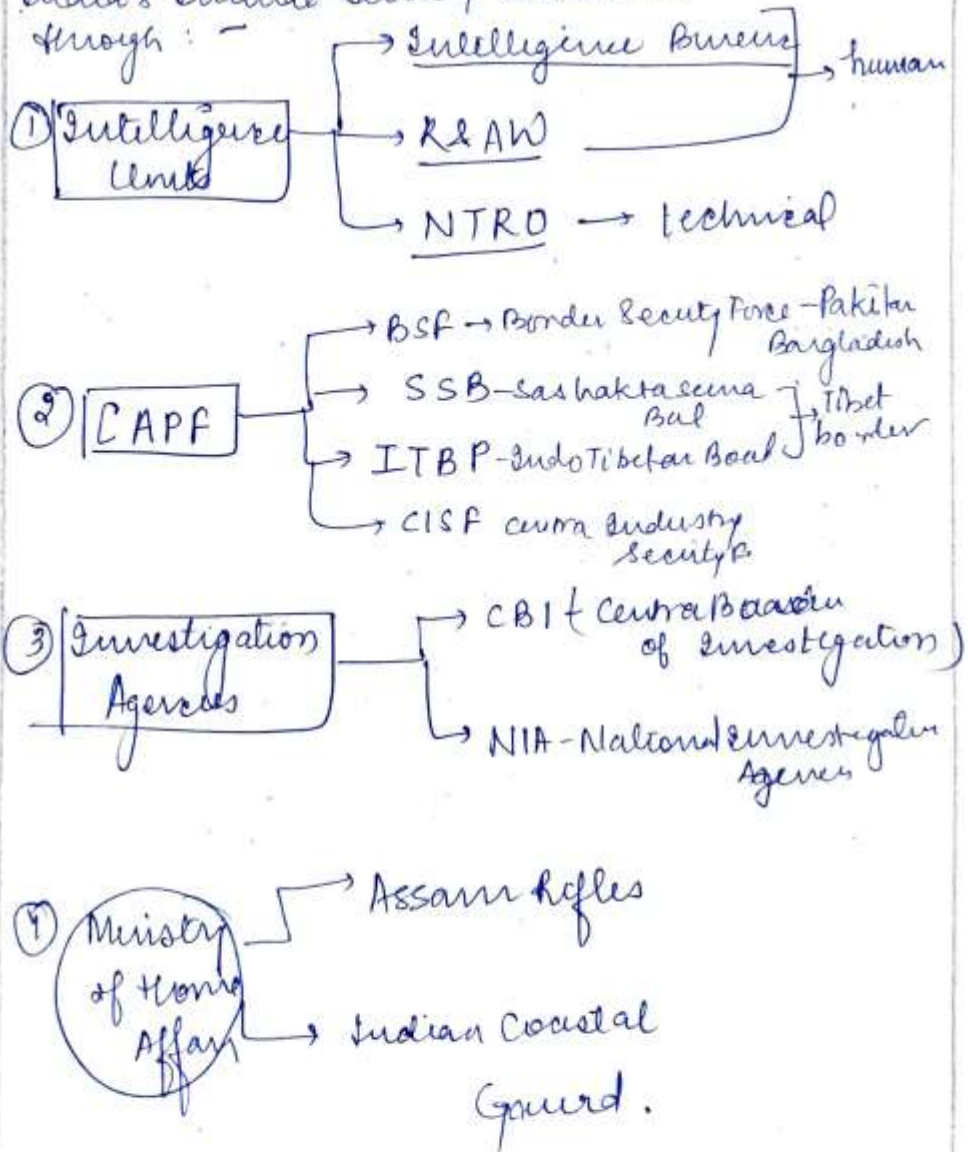 through : -
① Intelligence Units
→ Intelligence Bureau
→ R&AW
→ human
→ NTRO → technical
② CAPF
→ BSF → Border Secuty Force - Pakitan
Bangladesh
→ SSB - Sashaktra seema
Bal
→ Tibet
border
→ ITBP - Indo Tibetan
→ CISF Industry
Security F.
③ Investigation
Agencies
→ CBI (
of Investigation)
→ NIA - National
④ Ministry
of Home
Affairs
→ Assam Rifles
→ Indian Coastal
Gaurd .